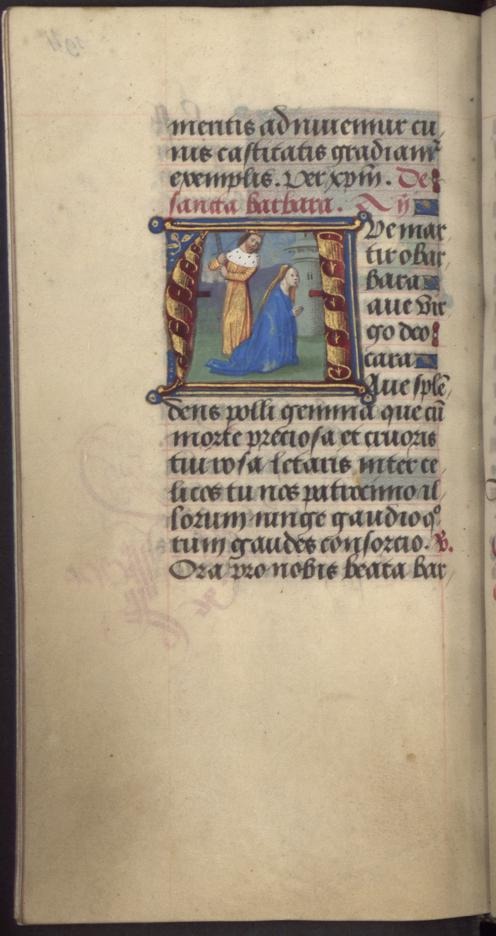 mentis adiuuemur cu
ius castitatis gradiamr
exemplis. Per xpm. De
sancta barbara. An
Aue mar
tir o bar
bara
aue vir
go deo
cara
Aue sple
dens polli gemma que cu
morte preciosa et cruoris
tui rosa letaris inter ce
licos tu nos patrocinio il
lorum iunge gaudio q
rum gaudes consorcio. V.
Ora pro nobis beata bar